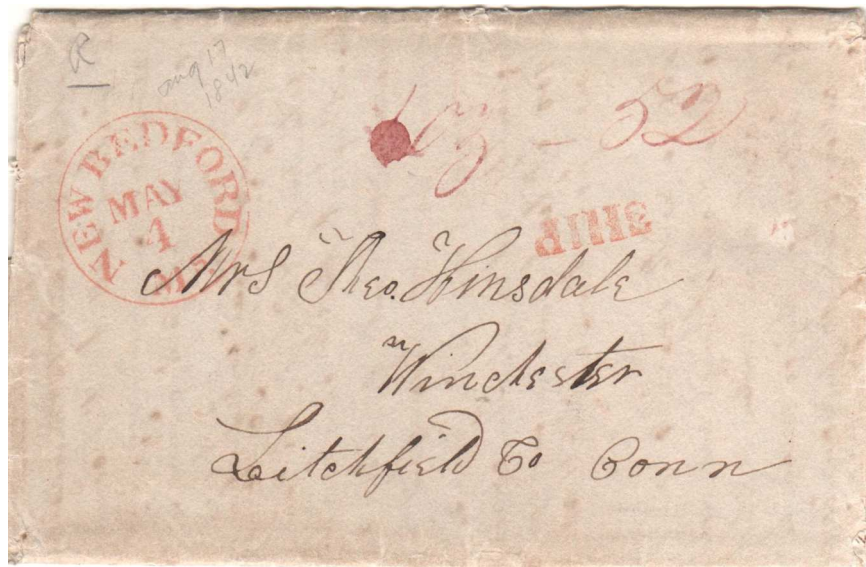 R
aug 17
1842
NEW BEDFORD
MAY
4
- 52
SHIP
Mrs Theo. Hinsdale
Winchester
Litchfield Co Conn